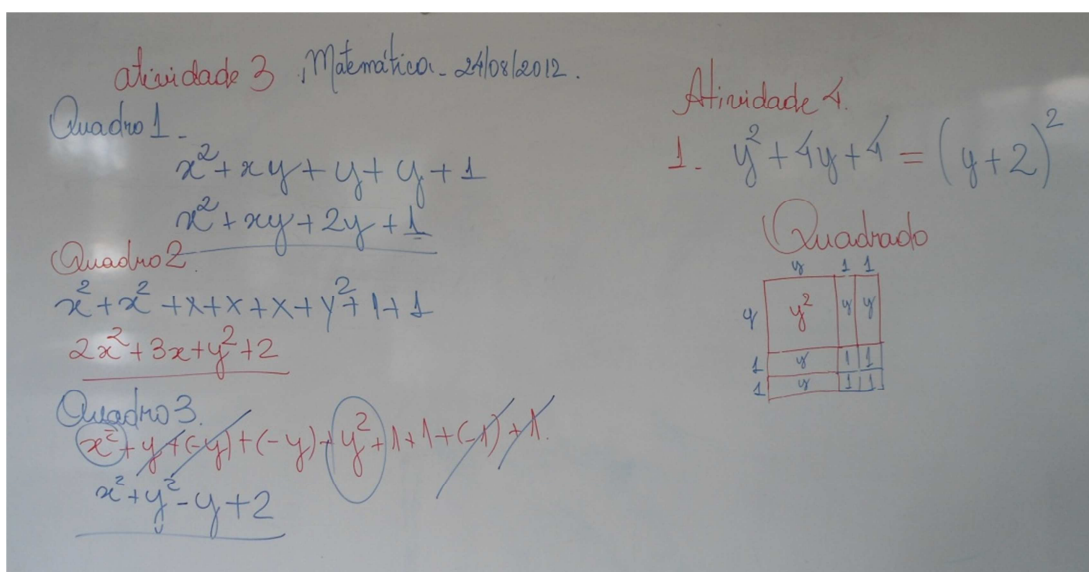 atividade 3, Matemática - 24/08/2012.
Quadro 1 -
x² + xy + y + y + 1
x² + xy + 2y + 1
Quadro 2.
x² + x² + x + x + x + y² + 1 + 1
2x² + 3x + y² + 2
Quadro 3.
x² + y + (-y) + (-y) + y² + 1 + 1 + (-1) + 1.
x² + y² - y + 2
Atividade 4.
1 - y² + 4y + 4 = (y + 2)²
Quadrado
y 1 1
y y² y y
1 y 1 1
1 y 1 1